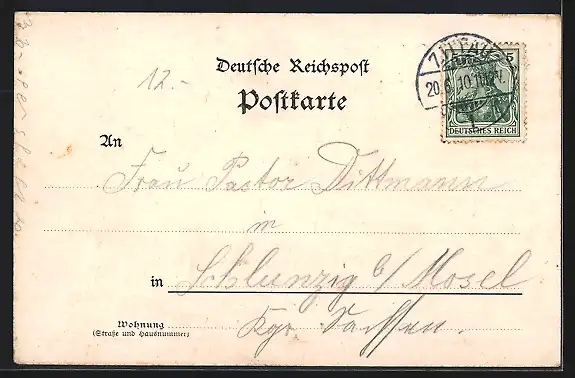 12.-
Deutsche Reichspost
Postkarte
ZITTAU
20.6.10
5
DEUTSCHES REICH
An
Frau Pastor Dittmann
in
in Schlunzig b/Mosel
Wohnung
(Straße und Hausnummer)
Kgr. Sachsen.